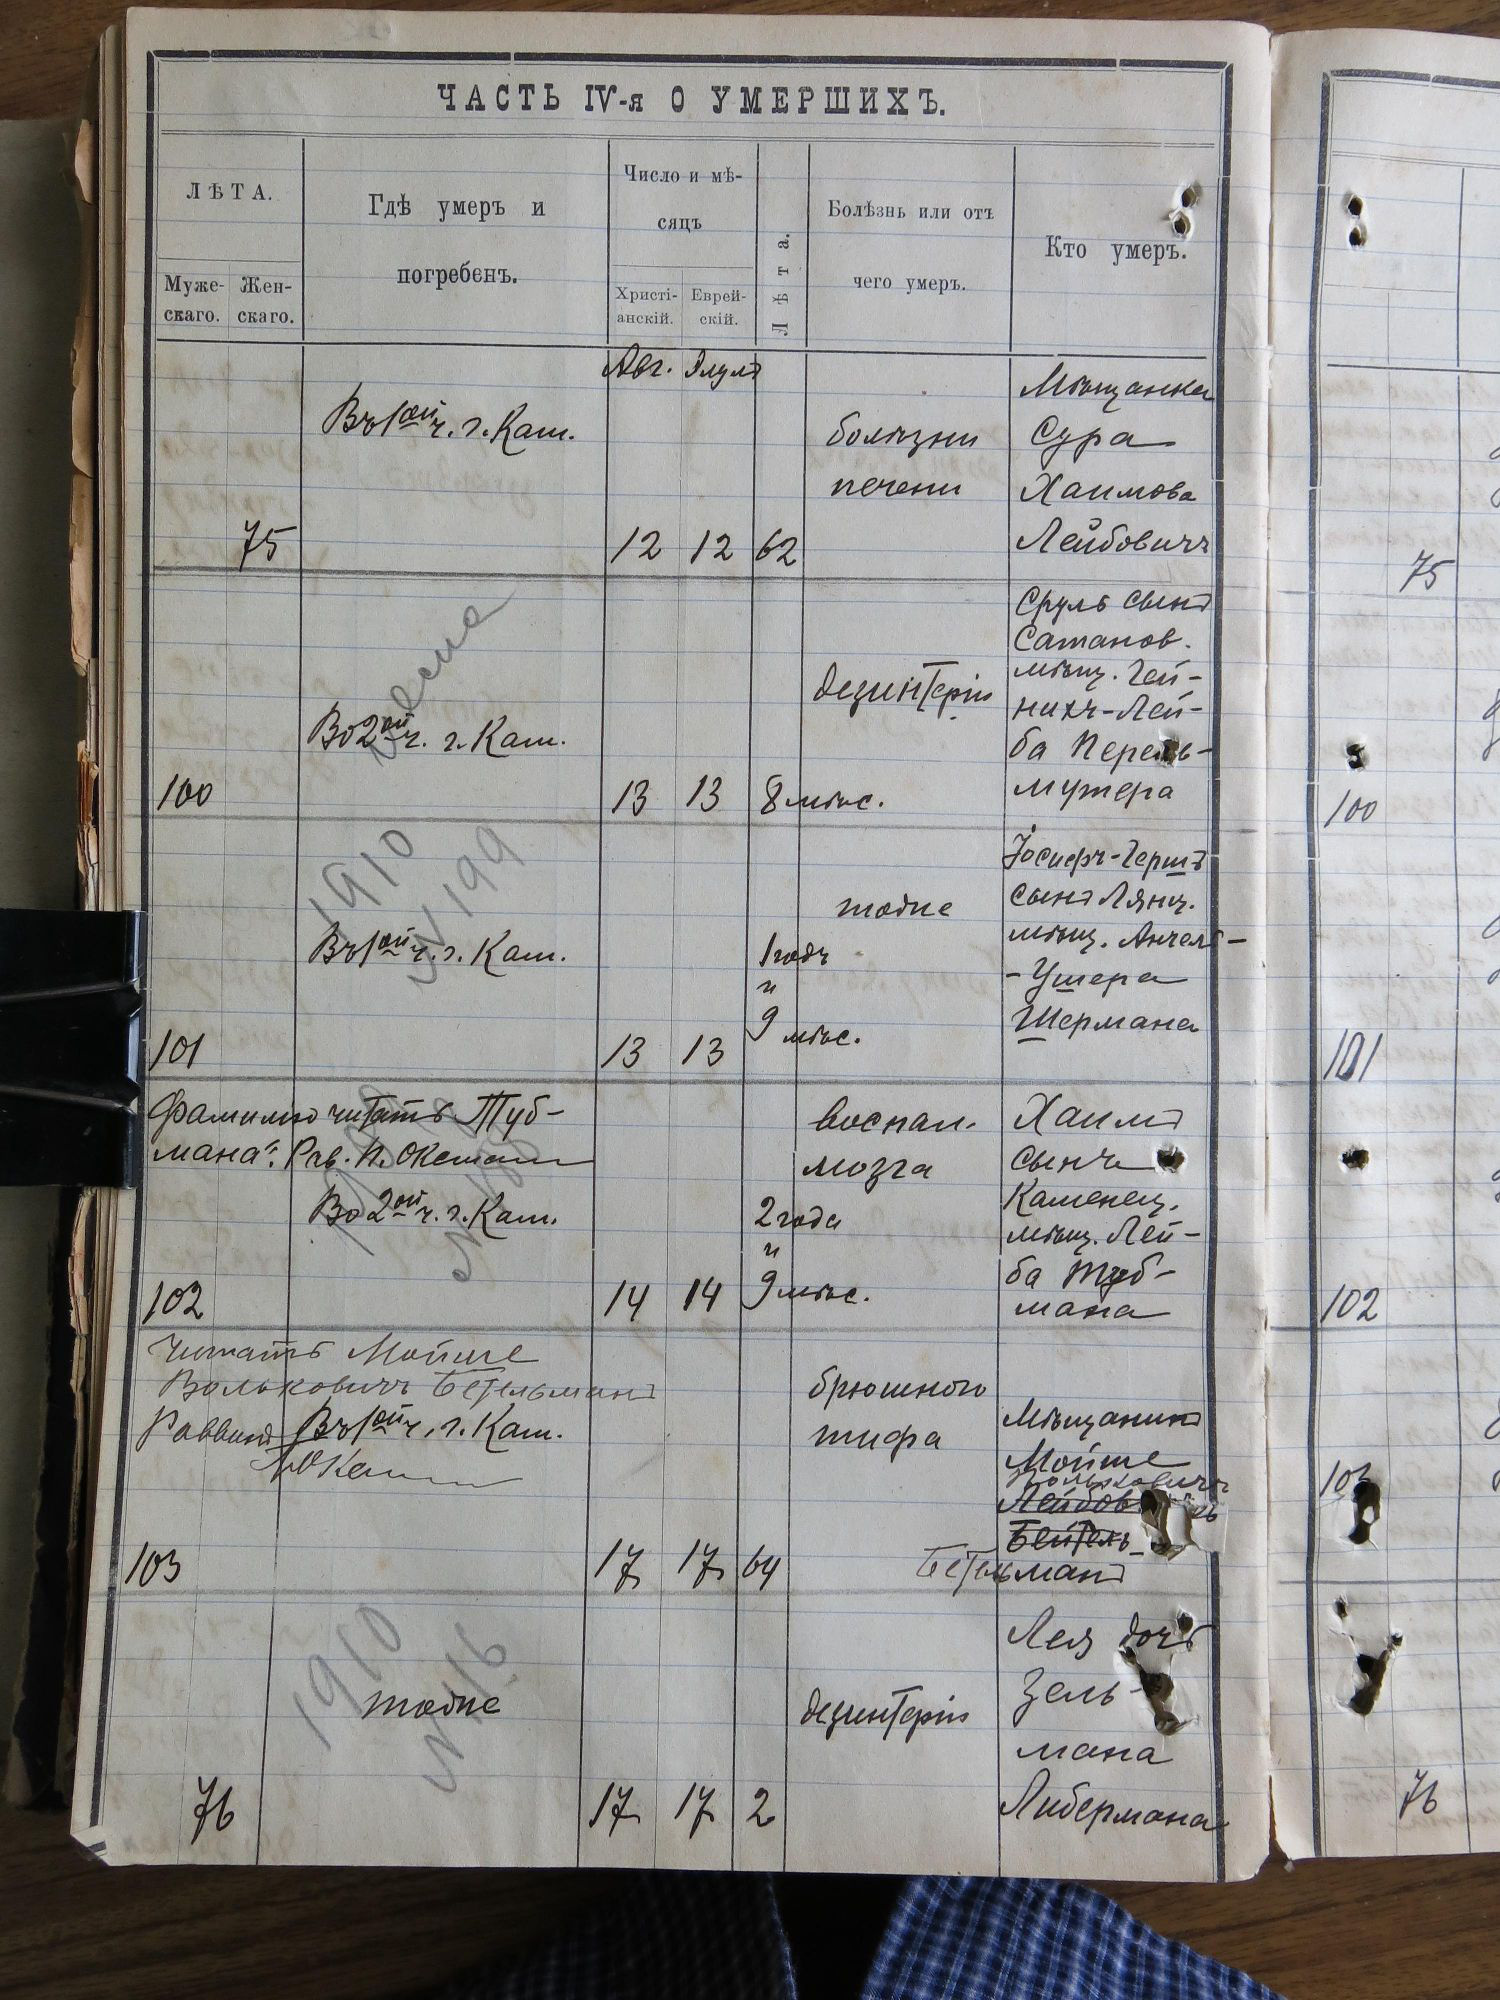 ЧАСТЬ IV-я О УМЕРШИХЪ.
ЛѢТА.
Муже-
скаго.
Жен-
скаго.
Гдѣ умеръ и
погребенъ.
Число и мѣ-
сяцъ
Христі-
анскій.
Еврей-
скій.
Лѣта.
Болѣзнь или отъ
чего умеръ.
Кто умеръ.
Авг. Элулъ
75
Въ 1ой ч. г. Кам.
12 12 62
болѣзни
печени
Мѣщанка
Сура
Хаимова
Лейбовичъ
100
Во 2ой ч. г. Кам.
13 13 8 мѣс.
дезинтеріи
Сруль сынъ
Сатанов.
мѣщ. Гей-
нихъ-Лей-
ба Перель-
мутера
1910
№ 199
101
Въ 1ой ч. г. Кам.
13 13
1 годъ
и
9 мѣс.
тоже
Іосифъ-Гершъ
сынъ Лянц.
мѣщ. Анчель-
-Ушера
Шермана
Фамилію читать Туб-
мана". Рав. И. Оксман
102
Во 2ой ч. г. Кам.
14 14
2 года
и
9 мѣс.
воспал.
мозга
Хаимъ
сынъ
Каменец.
мѣщ. Лей-
ба Туб-
мана
Читать Мойше
Вольковичъ Бетельманъ
Раввинъ
Въ 1ой ч. г. Кам.
103
17 17 64
брюшного
тифа
Мѣщанинъ
Мойше
Вольковичъ
Лейбов
Бейтель-
Бетельманъ
76
тоже
1910
№ 16
17 17 2
дезинтеріи
Лея дочь
Зель-
мана
Либермана
75
100
101
102
103
76